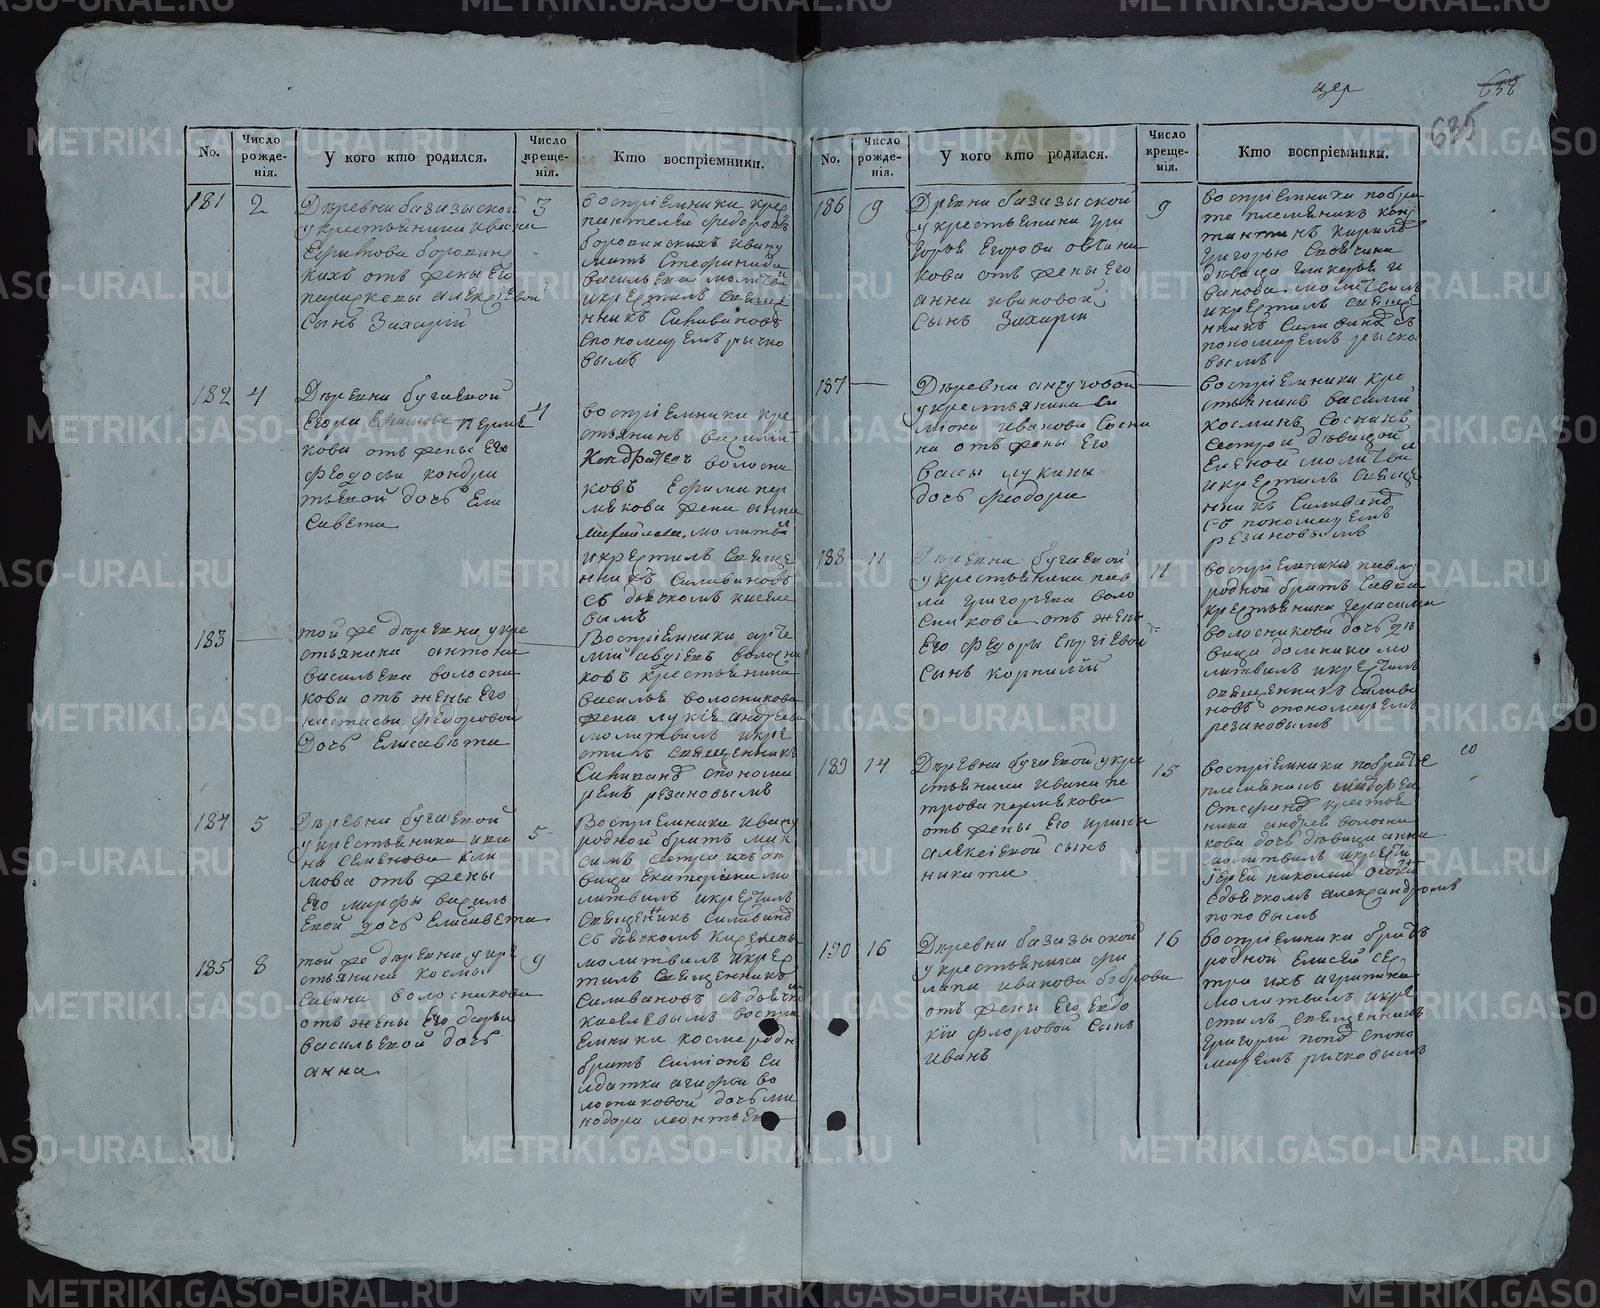 цер
638
635
No.
Число рожде-нія.
У кого кто родился.
Число креще-нія.
Кто воспріемники.
181
2
Деревни базизыской
у крестьянина ивана
Ефимова боровин
кихъ отъ жены Его
параскевы алексіевой
Сынъ Захарій
3
воспріемники кре
пантелей федоровъ
боровинскихъ ивану
мать Стефанида
васильева молитвил
икрестилъ Свяще
нникъ Силивановъ
спономаремъ рычко
вымъ
182
4
Деревни бугаевой
Егора Ефимова пермя
кова отъ жены Его
феодосьи кондра
тьевой дочь Ели
Савета
4
воспріемники кре
стьянинъ василій
Кондратьевъ волосни
ковъ Ефима пер
мякова жена анна
молитвил
икрестилъ Свяще
нникъ Силивановъ
съ дьячкомъ киселе
вымъ
183
той же деревни укре
стьянина антона
васильева волосни
кова отъ жены Его
настасьи федоровой
Дочь Елисавета
Воспріемники арте
мій авдіевъ волосни
ковъ крестьянина
василья волосникова
жена лукія андреева
молитвилъ икре
стилъ Священникъ
Силивановъ спонома
ремъ резановымъ
184
5
Деревни бугаевой
укрестьянина ива
на Семенова Кли
мова отъ жены
Его марфы василь
Евой дочь Елисавета
5
Воспріемники ивану
родной братъ мак
симъ Сестра ихъ дѣ
вица Екатерина мо
литвилъ икрестилъ
Священникъ Силивановъ
съ дьячкомъ Киселевы
185
8
той же деревни укре
стьянина космы
Савина волосникова
отъ жены Его дарьи
васильевой дочь
анна
9
молитвилъ икрес
тилъ Священникъ
Силивановъ съ дьячко
киселевымъ воспрі
Емники косме родн
братъ Симіонъ Са
лдатки агафьи во
лосниковой дочь ми
нодора леонтьева
No.
Число рожде-нія.
У кого кто родился.
Число креще-нія.
Кто воспріемники.
186
9
Деревни базизыской
укрестьянина гри
горья Егорова овчини
кова отъ жены Его
анны ивановой
Сынъ Захарій
9
воспріемники побра
те племяникъ кон
стантинъ кирилъ
григорью Своячина
дѣвица гликерья и
ванова молитвилъ
икрестилъ Свяще
нникъ Силивановъ съ
пономаремъ рычко
вымъ
187
Деревни анчуговой
укрестьянина Си
міона иванова Сосни
на отъ жены Его
вассы лукины
дочь феодора
воспріемники кре
стьянинъ василій
косминъ Соснинъ
Сестрой дѣвицой
Еленой молитвил
икрестилъ Свяще
нникъ Силивановъ
съ пономаремъ
резановымъ
188
11
Деревни бугаевой
укрестьянина пав
ла григорьева воло
сникова отъ жены
Его федоры Сергіевой
Сынъ корнилій
11
воспріемники павлу
родной братъ Савва
крестьянина герасима
волосникова дочь дѣ
вица домника мо
литвилъ икрестилъ
священникъ Силива
новъ спономаремъ
резановымъ
189
14
Деревни бугаевой укре
стьянина ивана пе
трова пермякова
отъ жены Его ирины
алексіевой сынъ
никита
15
воспріемники побратѣ
племяникъ
Стефановъ крестья
нина андрея волосни
кова дочь дѣвица анна
молитвилъ икрестил
іерей николай
сдьячкомъ александромъ
поповымъ
со
190
16
Деревни базизыской
укрестьянина фи
липа иванова боброва
отъ жены Его Евдо
кіи флоровой Сынъ
иванъ
16
воспріемники братъ
родной Елисей Се
тра ихъ агрипина
молитвилъ икре
стилъ Священникъ
григорій поповъ споно
маремъ рычковымъ